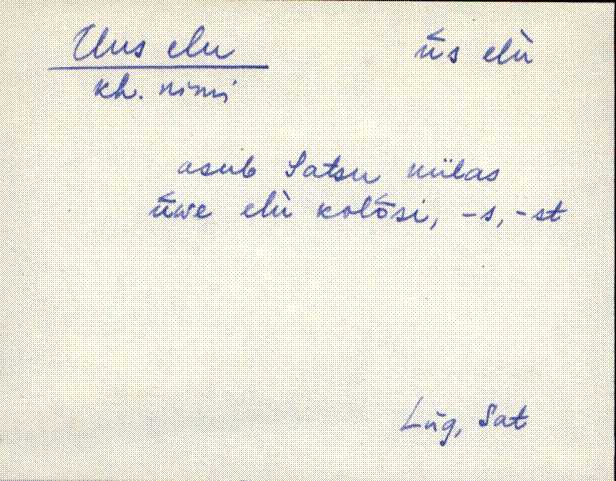 Uus elu ūs elù
kh. nimi
asub Satsu külas
ūwe elù kolōsi, -s, -st
Lüg, Sat